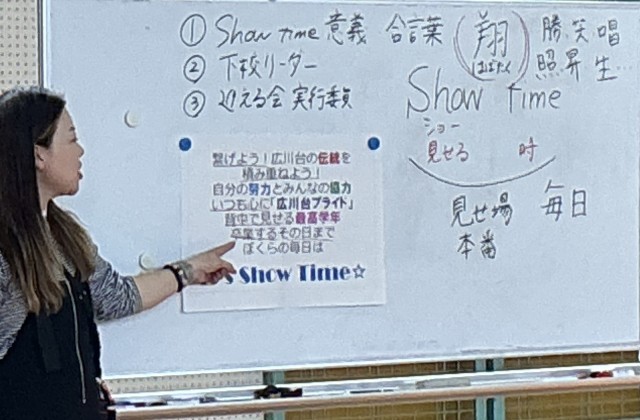 ① Show Time 意義 合言葉
② 下校リーダー
③ 迎える会 実行委員
翔
はばたく
勝 笑 唱
照 昇 生…
Show Time
ショー
見せる 時
見せ場 毎日
本番
繋げよう！広川台の伝統を
積み重ねよう！
自分の努力とみんなの協力
いつも心に「広川台プライド」
背中で見せる最高学年
卒業するその日まで
ぼくらの毎日は
's Show Time☆